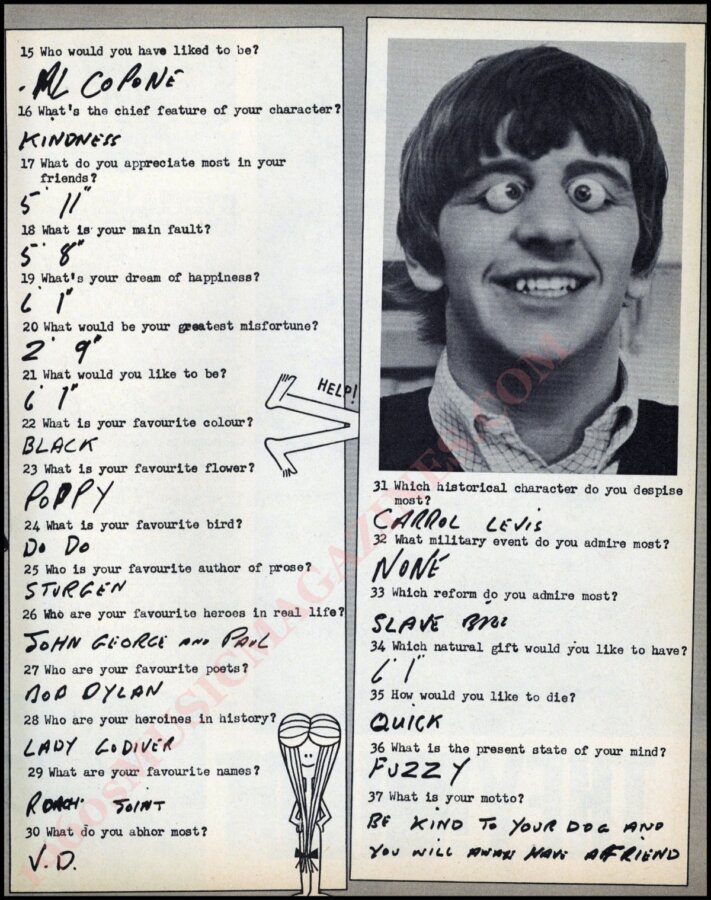 15 Who would you have liked to be?
AL COPONE
16 What's the chief feature of your character?
KINDNESS
17 What do you appreciate most in your
friends?
5' 11"
18 What is your main fault?
5' 8"
19 What's your dream of happiness?
6' 1"
20 What would be your greatest misfortune?
2' 9"
21 What would you like to be?
6' 1"
22 What is your favourite colour?
BLACK
23 What is your favourite flower?
POPPY
24 What is your favourite bird?
DO DO
25 Who is your favourite author of prose?
STURGEN
26 Who are your favourite heroes in real life?
JOHN GEORGE AND PAUL
27 Who are your favourite poets?
BOB DYLAN
28 Who are your heroines in history?
LADY GODIVER
29 What are your favourite names?
ROACH JOINT
30 What do you abhor most?
V.D.
HELP!
31 Which historical character do you despise
most?
CARROL LEVIS
32 What military event do you admire most?
NONE
33 Which reform do you admire most?
SLAVE
34 Which natural gift would you like to have?
6' 1"
35 How would you like to die?
QUICK
36 What is the present state of your mind?
FUZZY
37 What is your motto?
BE KIND TO YOUR DOG AND
YOU WILL HAVE A FRIEND
1960SMUSICMAGAZINES.COM